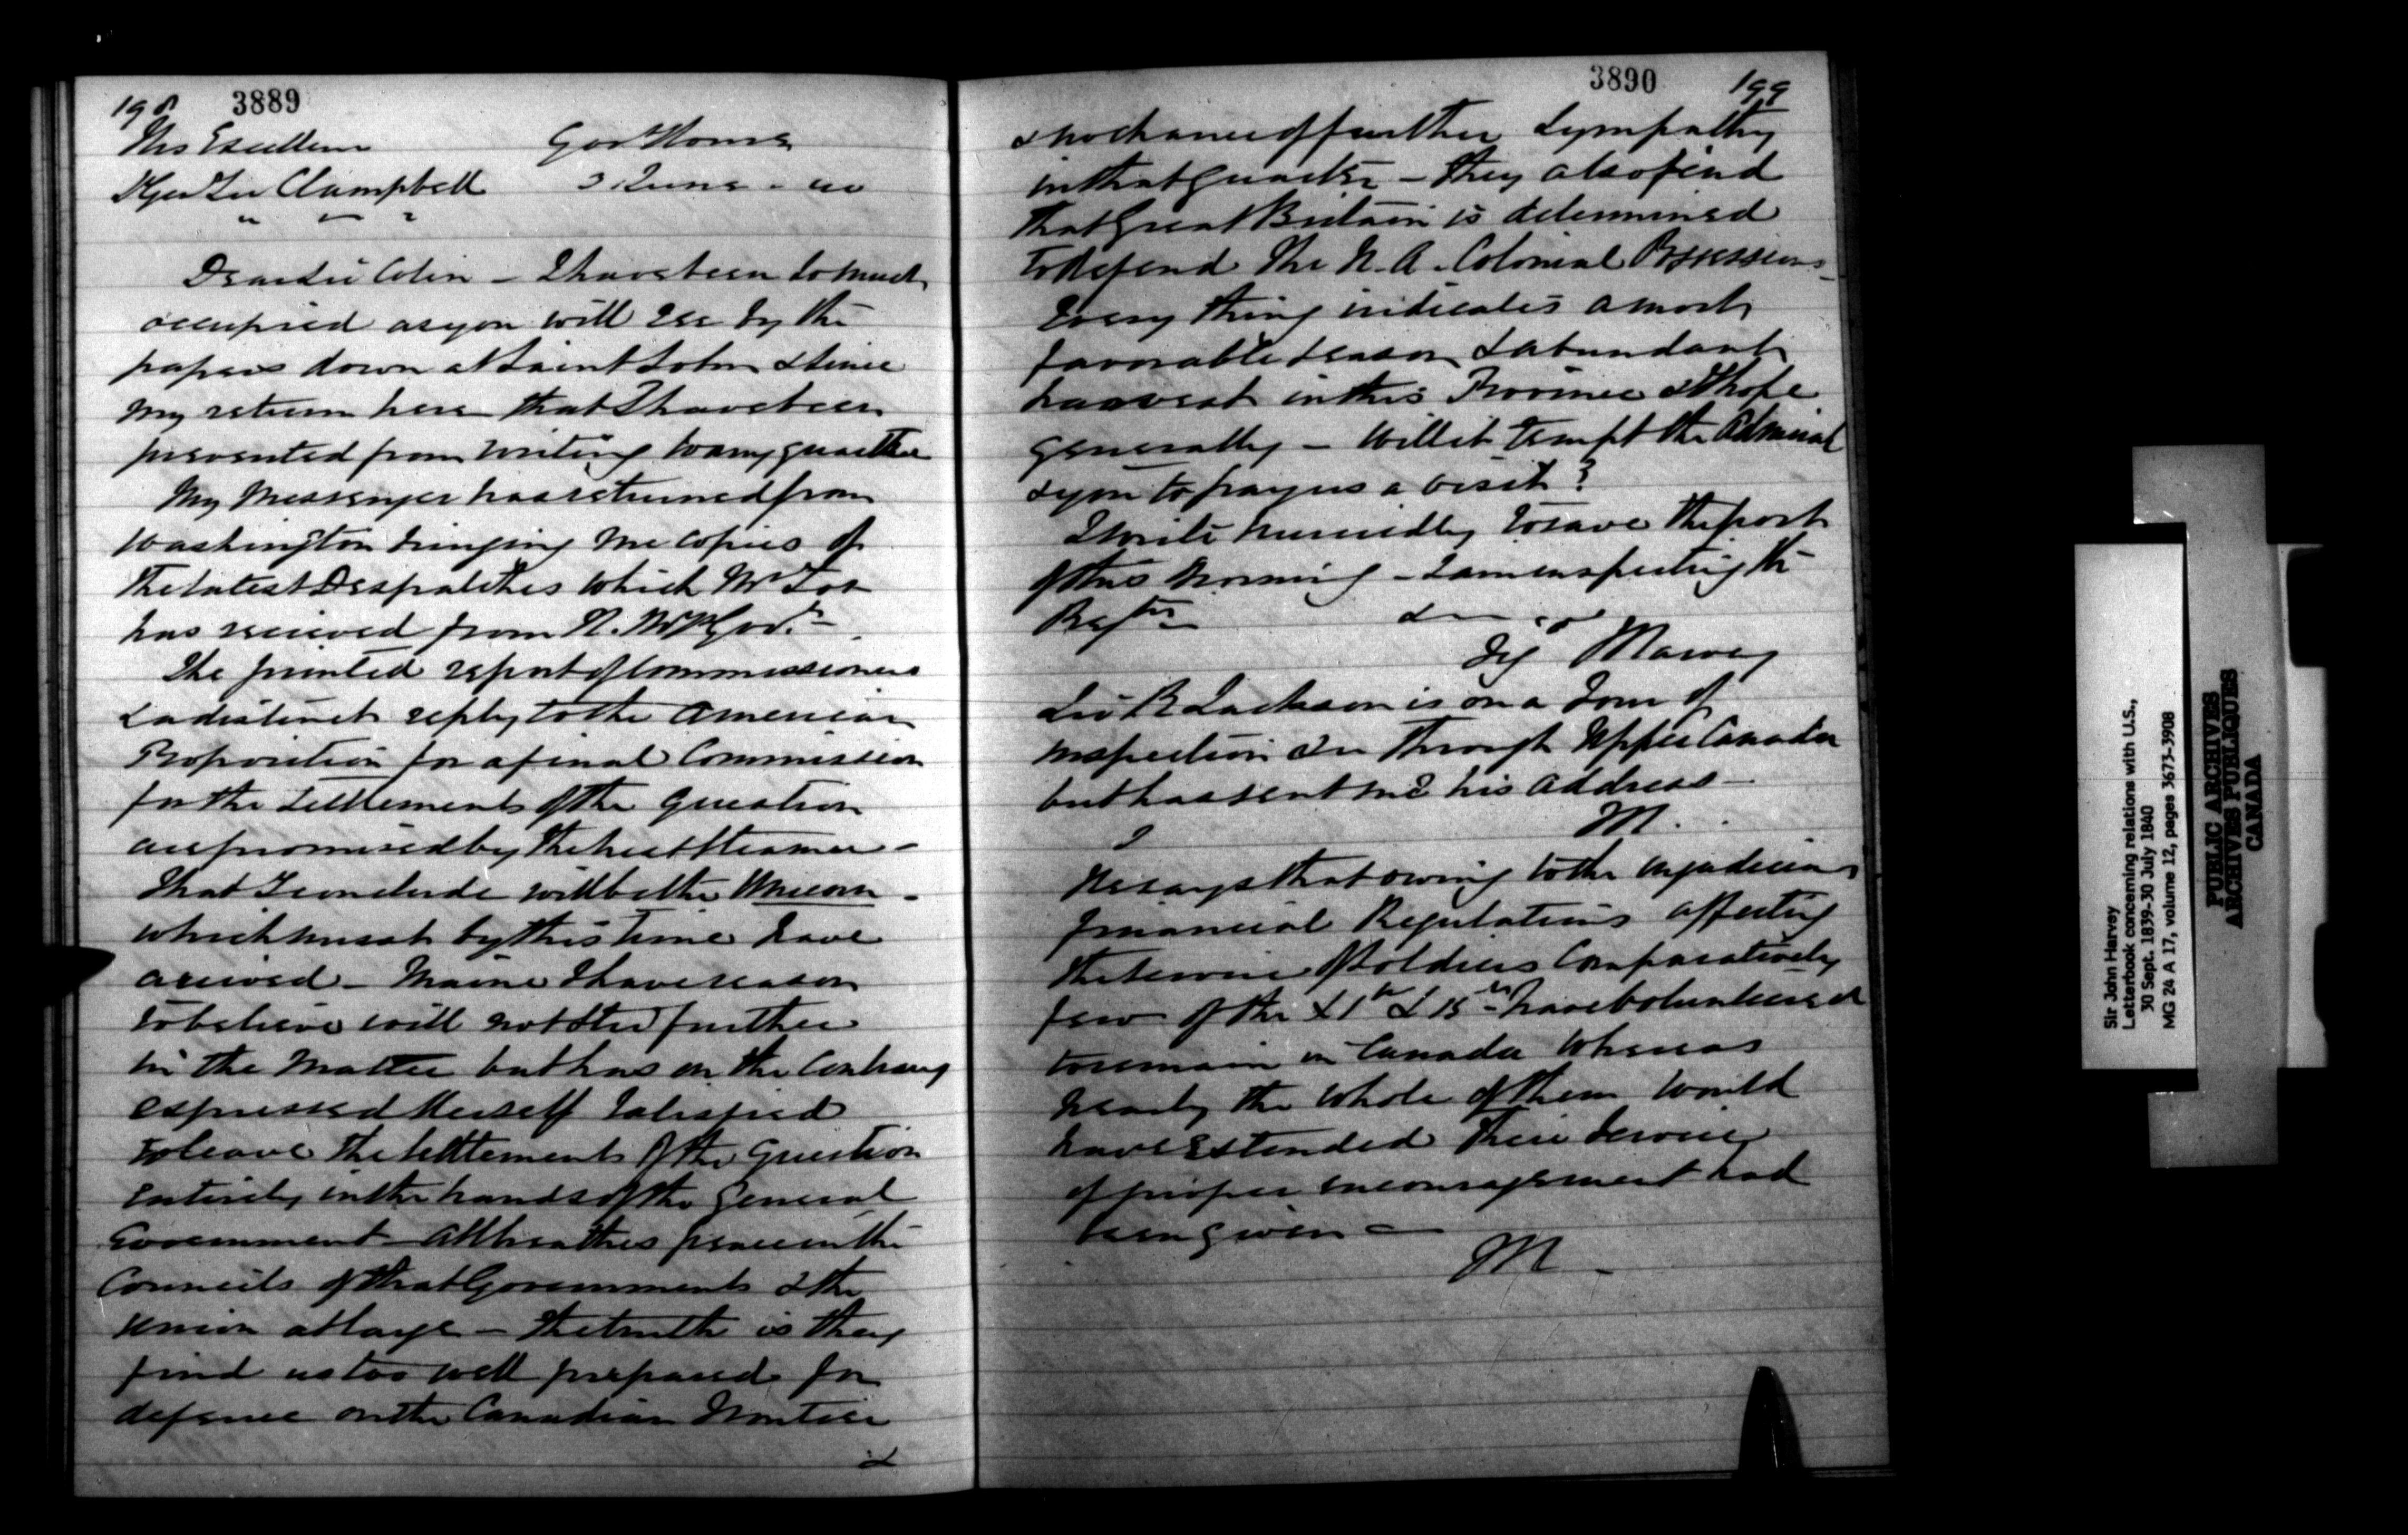 198 3889
His Excellency Govt House
M Gen Sir C Campbell 3 June - 40
" " "
Dear Sir Colin - I have been so much
occupied as you will see by the
papers down at Saint John & since
my return here that I have been
prevented from writing to any quarter
My Messenger has returned from
Washington bringing me copies of
the latest Despatches which Mr Fox
has received from H. M. Govt
The printed report of Commissioners
& a distinct reply to the American
Proposition for a final Commission
for the settlement of the question
are promised by the next steamer -
that I conclude will be the Unicorn -
which must by this time have
arrived - Maine I have reason
to believe will not stir further
in the matter but has on the Contrary
expressed Herself satisfied
to leave the settlement of the question
entirely in the hands of the General
Government - All breathes peace in the
Councils of that Government & the
Union at large - the truth is they
find us too well prepared for
defence on the Canadian Frontier
&
3890 199
& no chance of further Sympathy
in that quarter - they also find
that Great Britain is determined
to defend the N. A. Colonial Possessions -
Every thing indicates a most
favorable season & abundant
harvest in this Province & I hope
generally - Will it tempt the Admiral
& you to pay us a visit?
I write hurriedly to save the post
of this morning - I am inspecting the
Regts &c
Sgd Harvey
Sir R Jackson is on a Tour of
inspection &c through Upper Canada
but has sent me his address -
H.
He says that owing to the injudicious
financial Regulations affecting
the service of Soldiers Comparatively
few of the & 15th have volunteered
to remain in Canada whereas
nearly the whole of them would
have extended their service
if proper encouragement had
been given -
H -
Sir John Harvey
Letterbook concerning relations with U.S.,
30 Sept. 1839-30 July 1840
MG 24 A 17, volume 12, pages 3673-3908
PUBLIC ARCHIVES
ARCHIVES PUBLIQUES
CANADA